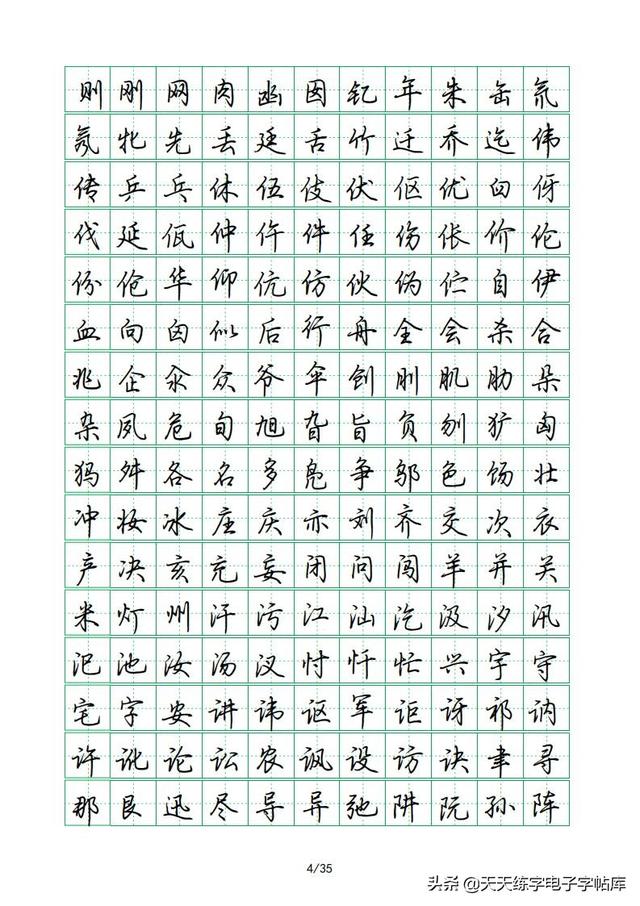 则刚网肉凼囡钇年朱缶氘
氖牝先丢廷舌竹迁乔迄伟
传乒乓休伍伎伏伛优臼伢
伐延佤仲仵件任伤伥价伦
份伧华仰伉仿伙伪伫自伊
血向囟似后行舟全会杀合
兆企汆众爷伞创刖肌肋朵
杂夙危旬旭旮旨负刎犷匈
犸舛各名多凫争邬色饧壮
冲妆冰庄庆亦刘齐交次衣
产决亥充妄闭问闯羊并关
米灯州汗污江汕汔汲汐汛
汜池汝汤汊忖忏忙兴宇守
宅字安讲讳讴军讵讶祁讷
许讹论讼农讽设访诀聿寻
那艮迅尽导异弛阱阮孙阵
4/35
头条 @天天练字电子字帖库